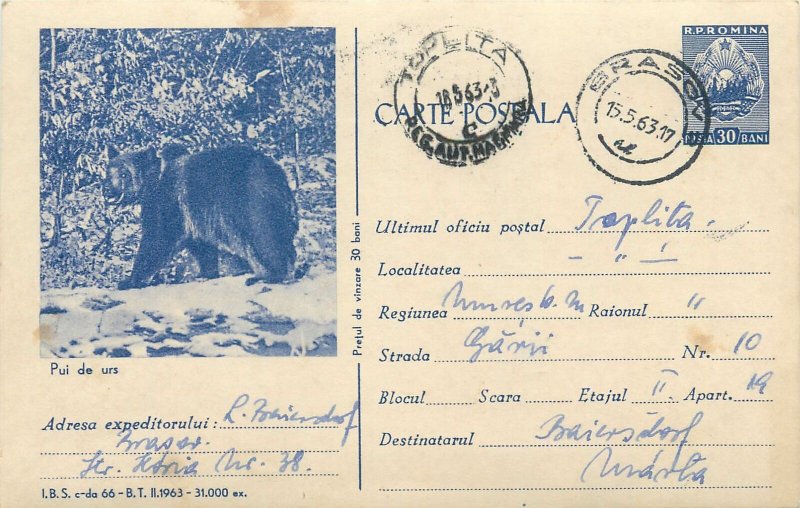 R.P.ROMINA
POSTA 30 BANI
TOPLITA
18.5.63-
REG.AUT.MAGHIARA
BRASOV
15.5.63.17
CARTE POSTALA
Pui de urs
Prețul de vinzare 30 bani
Adresa expeditorului: R. Baiersdorf
Brasov.
Str. Horia Nr. 38.
I.B.S. c-da 66 - B.T. II.1963 - 31.000 ex.
Ultimul oficiu poștal Toplita.
Localitatea — " —
Regiunea Mureș Raionul "
Strada Gării Nr. 10
Blocul Scara Etajul II. Apart. 19
Destinatarul Baiersdorf
Márta